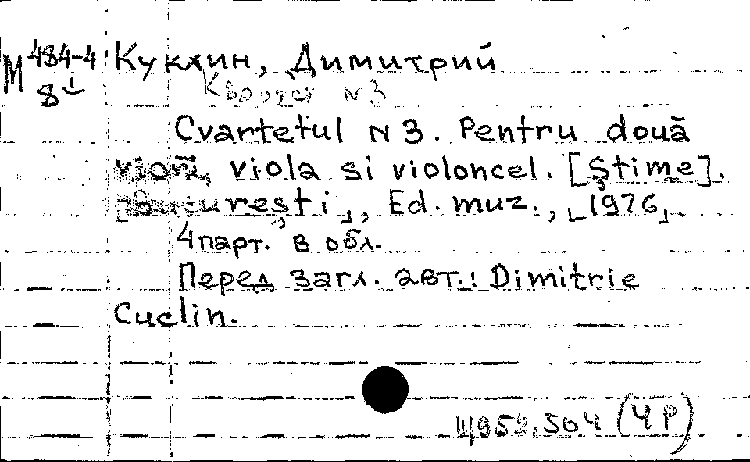 М 484-4 Куклин, Димитрий
8° Квартет N 3
Cvartetul N 3. Pentru două
viori, viola si violoncel. [Ştime].
[Bucureşti], Ed. muz., [1976].
4 парт. в обл.
Перед загл. авт.: Dimitrie
Cuclin.
(4 р)